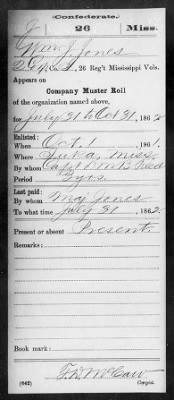 Confederate.
J 26 Miss.
Wm J Jones
26 Reg't Mississippi Vols.
Appears on
Company Muster Roll
of the organization named above,
for July 31 to Oct 31, 1862
Enlisted:
When Oct 1, 1861
Where Iuka Miss
By whom Capt
Period 3 yrs
Last paid:
By whom Maj Jones
To what time July 31, 1862.
Present or absent Present.
Remarks:
Book mark:
(642) Copyist.